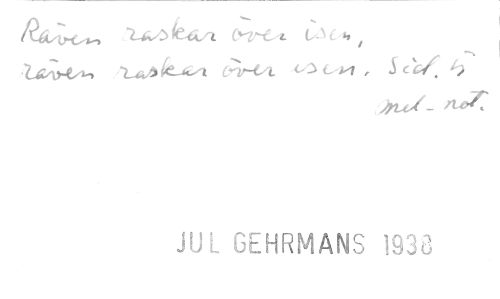 Räven raskar över isen,
räven raskar över isen. Sid. 15
mel-not.
JUL GEHRMANS 1938